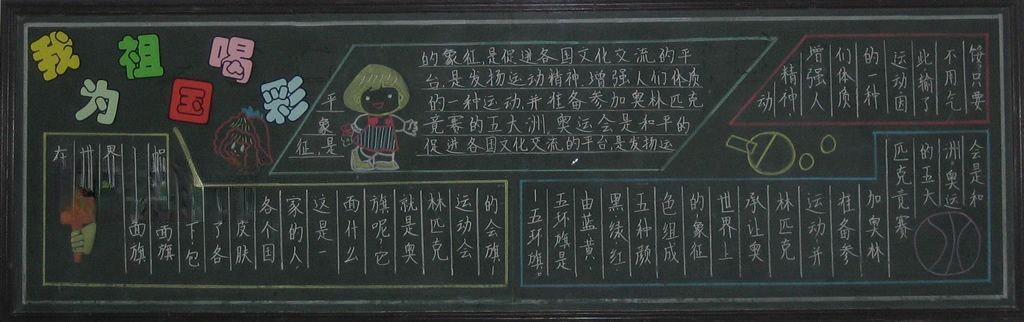 我为祖国喝彩
的象征,是促进各国文化交流的平
台是发扬运动精神,增强人们体质
的一种运动,并准备参加奥林匹克
竞赛的五大洲,奥运会是和平的
促进各国文化交流的平台,是发扬运
平
象
征,是
馁只要
不用气
此输了
运动因
的一种
们体质
增强人
精神,
动
会是和
洲,奥运
的五大
匹克竞赛
加奥林
准备参
运动并
林匹克
承让奥
世界上
的象征
色组成
五种颜
黑绿红,
由蓝,黄,
五环旗是
一五环旗。
的会旗!
运动会
林匹克
就是奥
旗呢,它
西什么
这是一
家的人,
各个国
皮肤
了各
下,包
西旗
面旗
世界
在